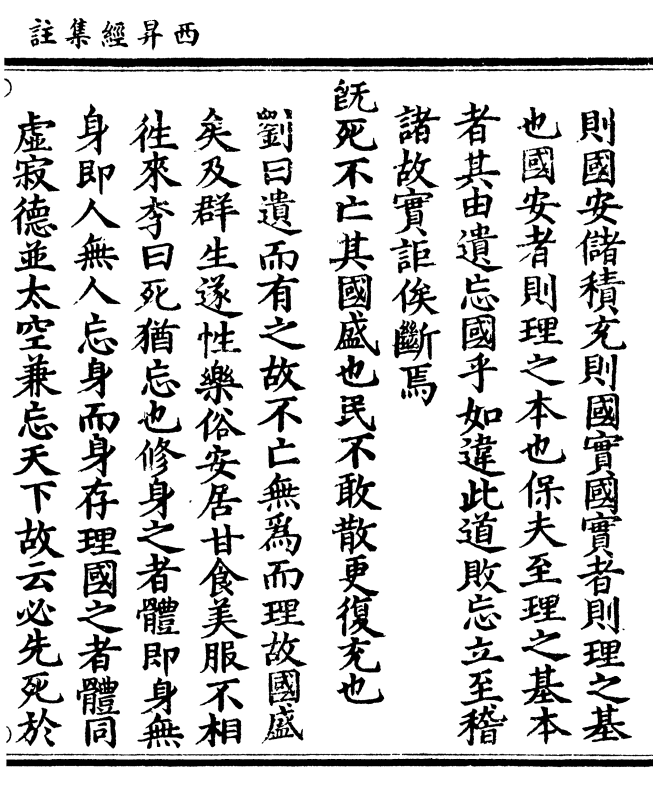 西昇經集註
則國安儲積充則國實國實者則理之基
也國安者則理之本也保夫至理之基本
者其由遺忘國乎如違此道敗忘立至稽
諸故實詎俟斷焉
旣死不亡其國盛也民不敢散更復充也
劉曰遺而有之故不亡無爲而理故國盛
矣及群生遂性樂俗安居甘食美服不相
徃來李曰死猶忘也修身之者體即身無
身即人無人忘身而身存理國之者體同
虛寂德並太空兼忘天下故云必先死於